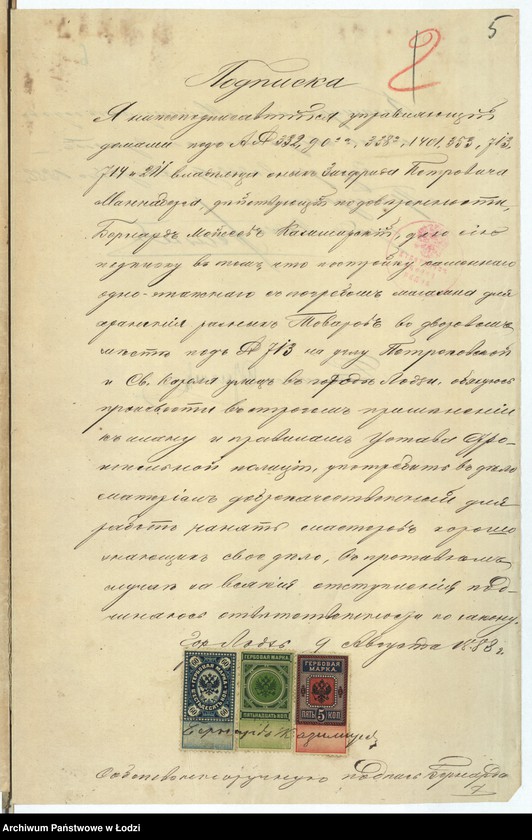 5
2
Подписка
Я нижеподписавшійся управляющій
домами подъ №№ 332, 358, 1401, 553, 713,
714 и 211 владѣльца оныхъ Зигфрида Петровича
Маннаберга, дѣйствующій по довѣренности,
Бернардъ Мотесовъ Казимирскій, даю сію
подписку въ томъ, что постройку каменнаго
одно-этажнаго съ погребомъ магазина для
храненія разныхъ Товаровъ во дворовомъ
мѣстѣ подъ № 713 на углу Петроковской
и Св. Кароля улицъ въ городѣ Лодзи, обязуюсь
произвести въ строгомъ примѣненіи
къ плану и правиламъ Устава Стро-
ительной полиціи, употребить въ дѣло
матеріалъ доброкачественный для
работъ нанять мастеровъ хорошо
знающихъ свое дѣло, въ противномъ
случаѣ за всякія отступленія под-
чиняюсь отвѣтственности по закону.
Гор. Лодзь 9 Августа 1883 г.
ГЕРБОВАЯ МАРКА
60
ГЕРБОВАЯ МАРКА
ПЯТЬНАДЦАТЬ КОП.
ГЕРБОВАЯ МАРКА
ПЯТЬ 5 КОП
Бернардъ Казимирскій
Собственноручную подпись Бернарда
Archiwum Państwowe w Łodzi